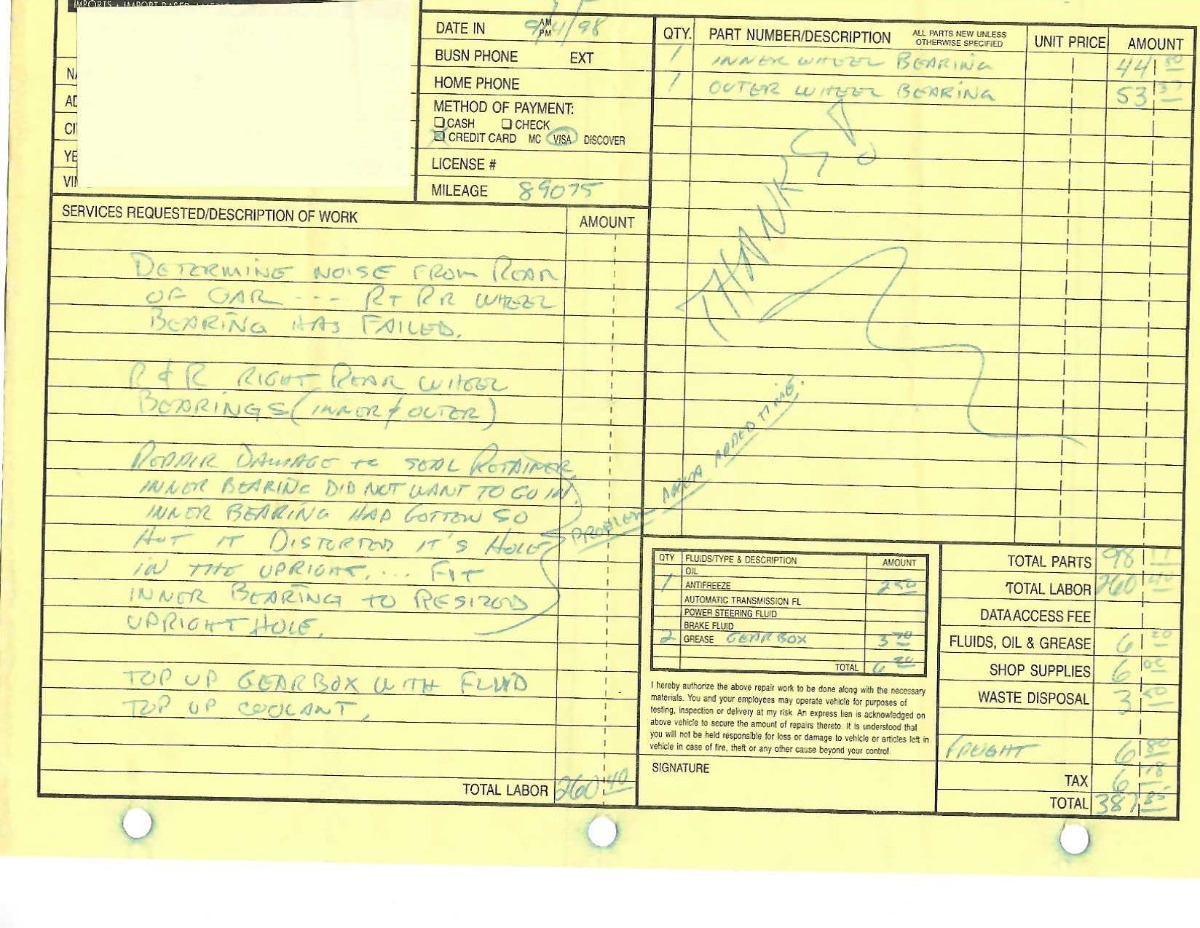 IMPORTS • IMPORT BASED
DATE IN 9/4/98 AM PM
BUSN PHONE EXT
HOME PHONE
METHOD OF PAYMENT:
CASH CHECK
CREDIT CARD MC VISA DISCOVER
LICENSE #
MILEAGE 89075
NA
AD
CI
YE
VIN
QTY. PART NUMBER/DESCRIPTION ALL PARTS NEW UNLESS OTHERWISE SPECIFIED UNIT PRICE AMOUNT
1 INNER WHEEL BEARING 44 80
1 OUTER WHEEL BEARING 53 37
THANKS!
SERVICES REQUESTED/DESCRIPTION OF WORK AMOUNT
DETERMINE NOISE FROM REAR
OF CAR --- RT RR WHEEL
BEARING HAS FAILED.
R & R RIGHT REAR WHEEL
BEARINGS (INNER & OUTER)
REPAIR DAMAGE TO SEAL RETAINER
INNER BEARING DID NOT WANT TO GO IN
INNER BEARING HAD GOTTEN SO
HOT IT DISTORTED IT'S HOLE
IN THE UPRIGHT.... FIT
INNER BEARING TO RESIZED
UPRIGHT HOLE.
PROBLEM AREA ADDED TIME.
TOP UP GEARBOX WITH FLUID
TOP UP COOLANT.
TOTAL LABOR 260 40
QTY FLUIDS/TYPE & DESCRIPTION AMOUNT
OIL
1 ANTIFREEZE 2 50
AUTOMATIC TRANSMISSION FL
POWER STEERING FLUID
BRAKE FLUID
2 GREASE GEARBOX 3 70
TOTAL 6 20
I hereby authorize the above repair work to be done along with the necessary
materials. You and your employees may operate vehicle for purposes of
testing, inspection or delivery at my risk. An express lien is acknowledged on
above vehicle to secure the amount of repairs thereto. It is understood that
you will not be held responsible for loss or damage to vehicle or articles left in
vehicle in case of fire, theft or any other cause beyond your control.
SIGNATURE
TOTAL PARTS 98 17
TOTAL LABOR 260 40
DATA ACCESS FEE
FLUIDS, OIL & GREASE 6 20
SHOP SUPPLIES 6 00
WASTE DISPOSAL 3 50
FREIGHT 6 80
TAX 6 78
TOTAL 387 85